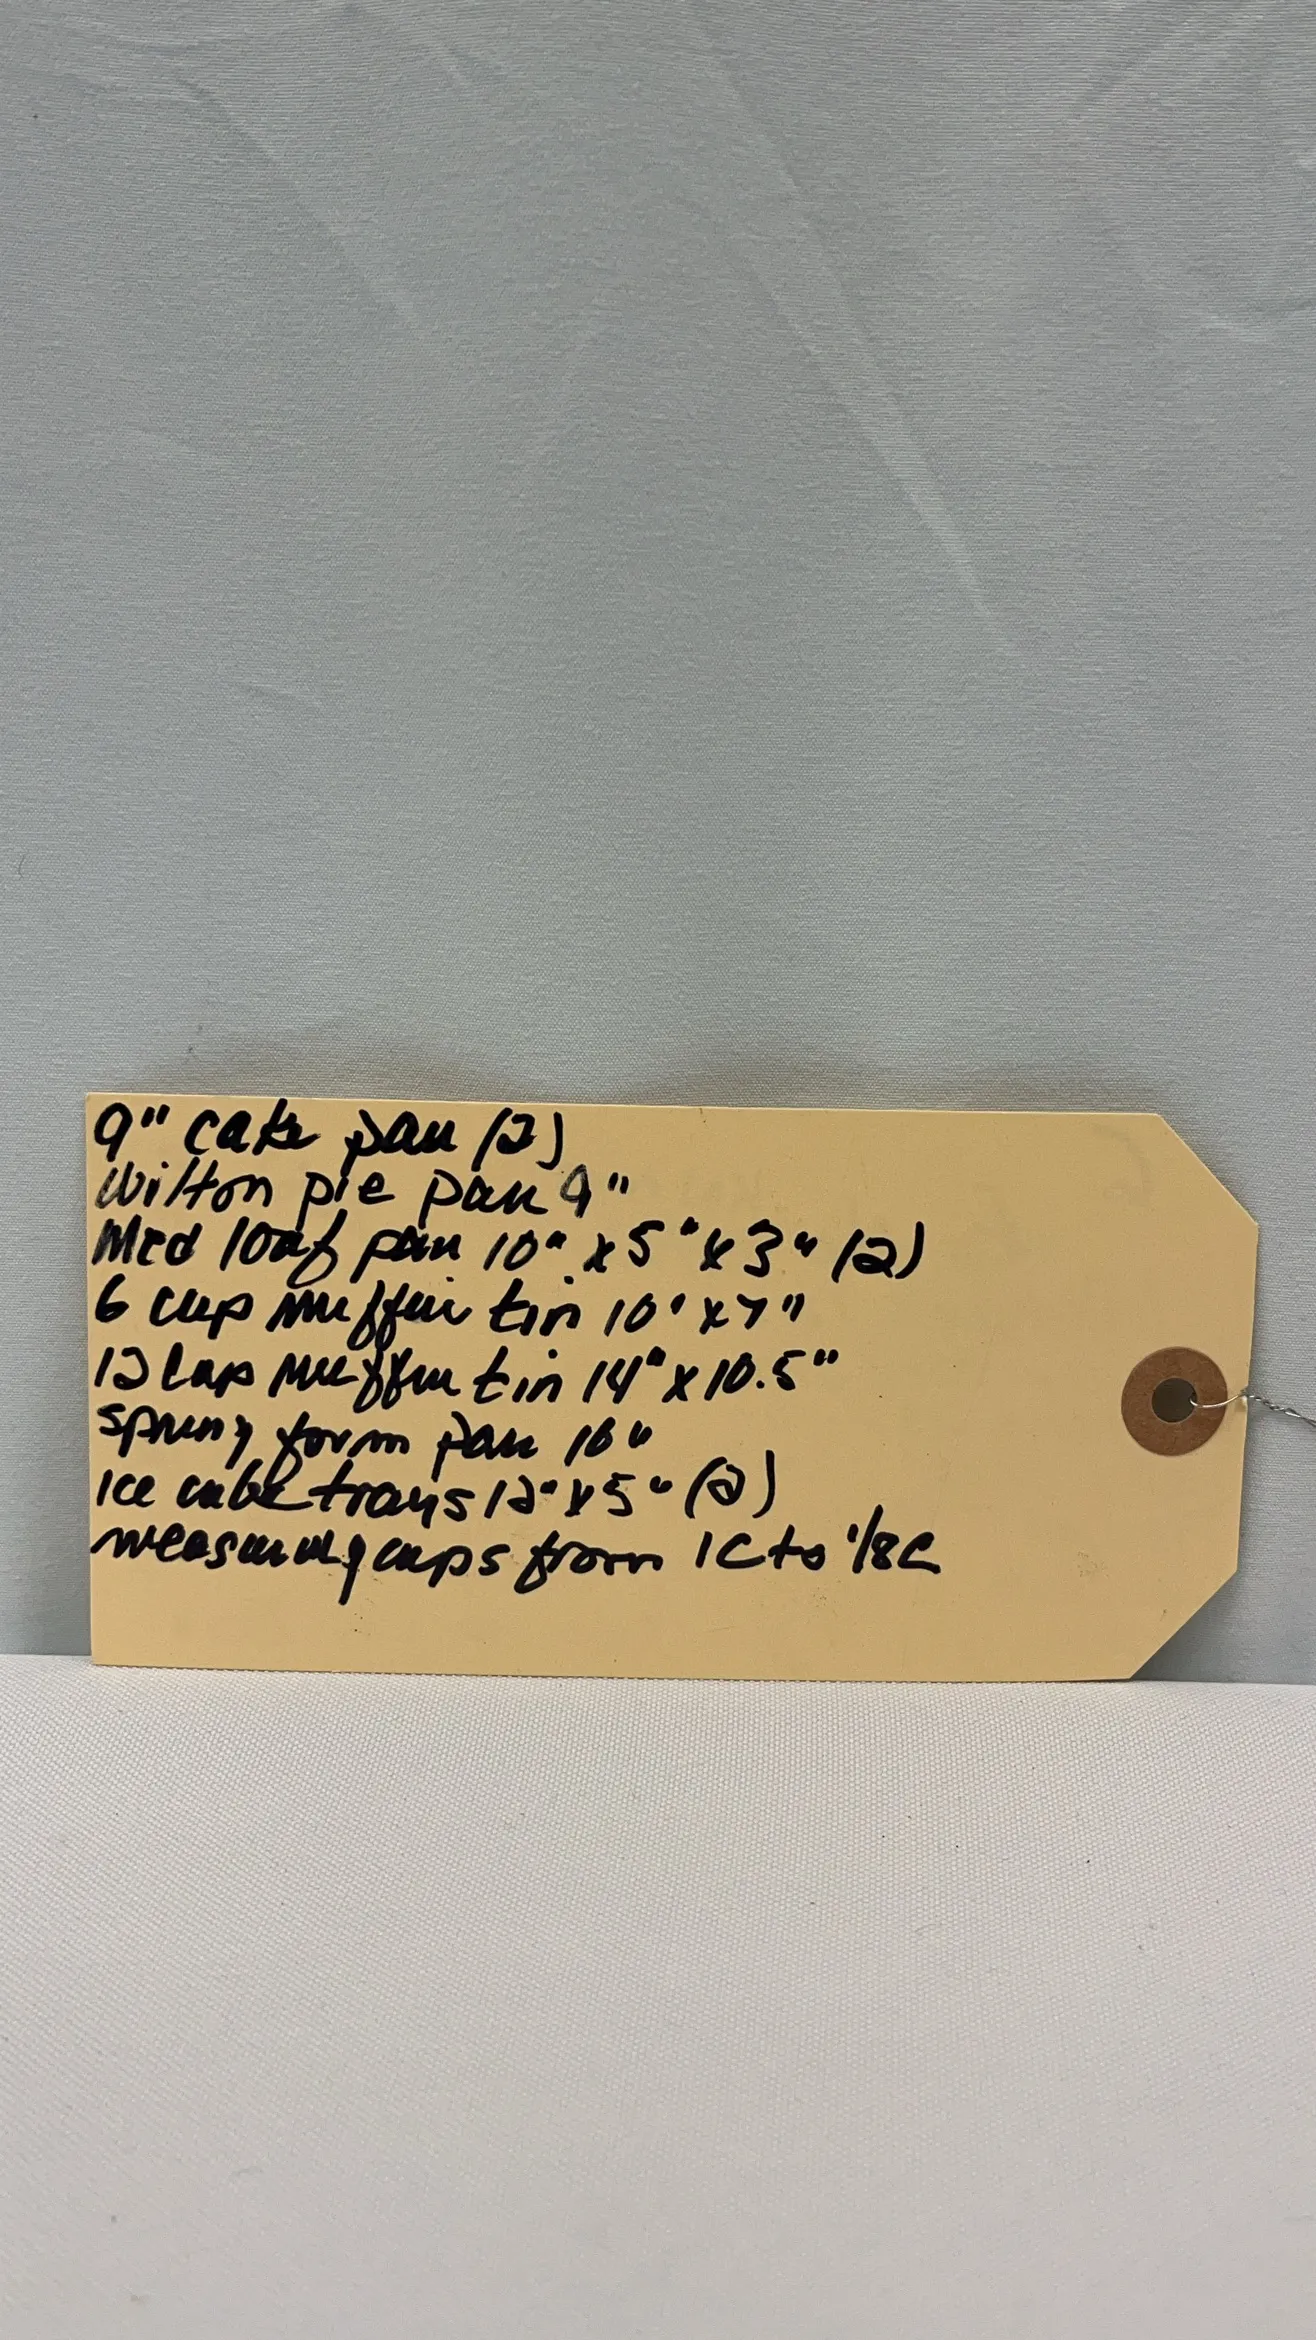 9" cake pan (2)
Wilton pie pan 9"
Med loaf pan 10" x 5" x 3" (2)
6 cup muffin tin 10" x 7"
12 cup muffin tin 14" x 10.5"
spring form pan 10"
Ice cube trays 12" x 5" (2)
measuring cups from 1C to 1/8C